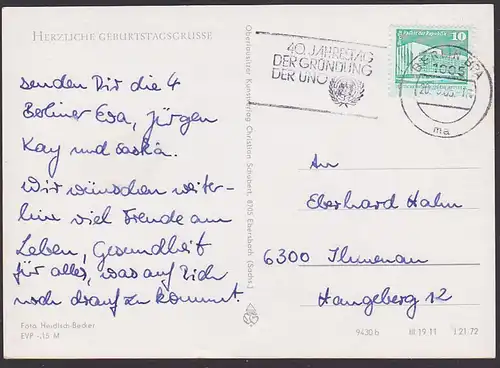 HERZLICHE GEBURTSTAGSGRÜSSE
senden Dir die 4
Berliner Eva, Jürgen
Kay und Saskia.
Wir wünschen weiter-
hin viel Freude am
Leben, Gesundheit
für alles, was auf Dich
noch drauf zu kommt.
Foto: Neudisch-Becker
EVP -,15 M
Oberlausitzer Kunstverlag Christian Schubert, 8705 Ebersbach (Sachs.)
40. JAHRESTAG
DER GRÜNDUNG
DER UNO
10
BERLIN BPA
1085
ma
An
Eberhard Hahn
6300 Ilmenau
Hangeberg 12
9430 b III 19 11 J 21.72